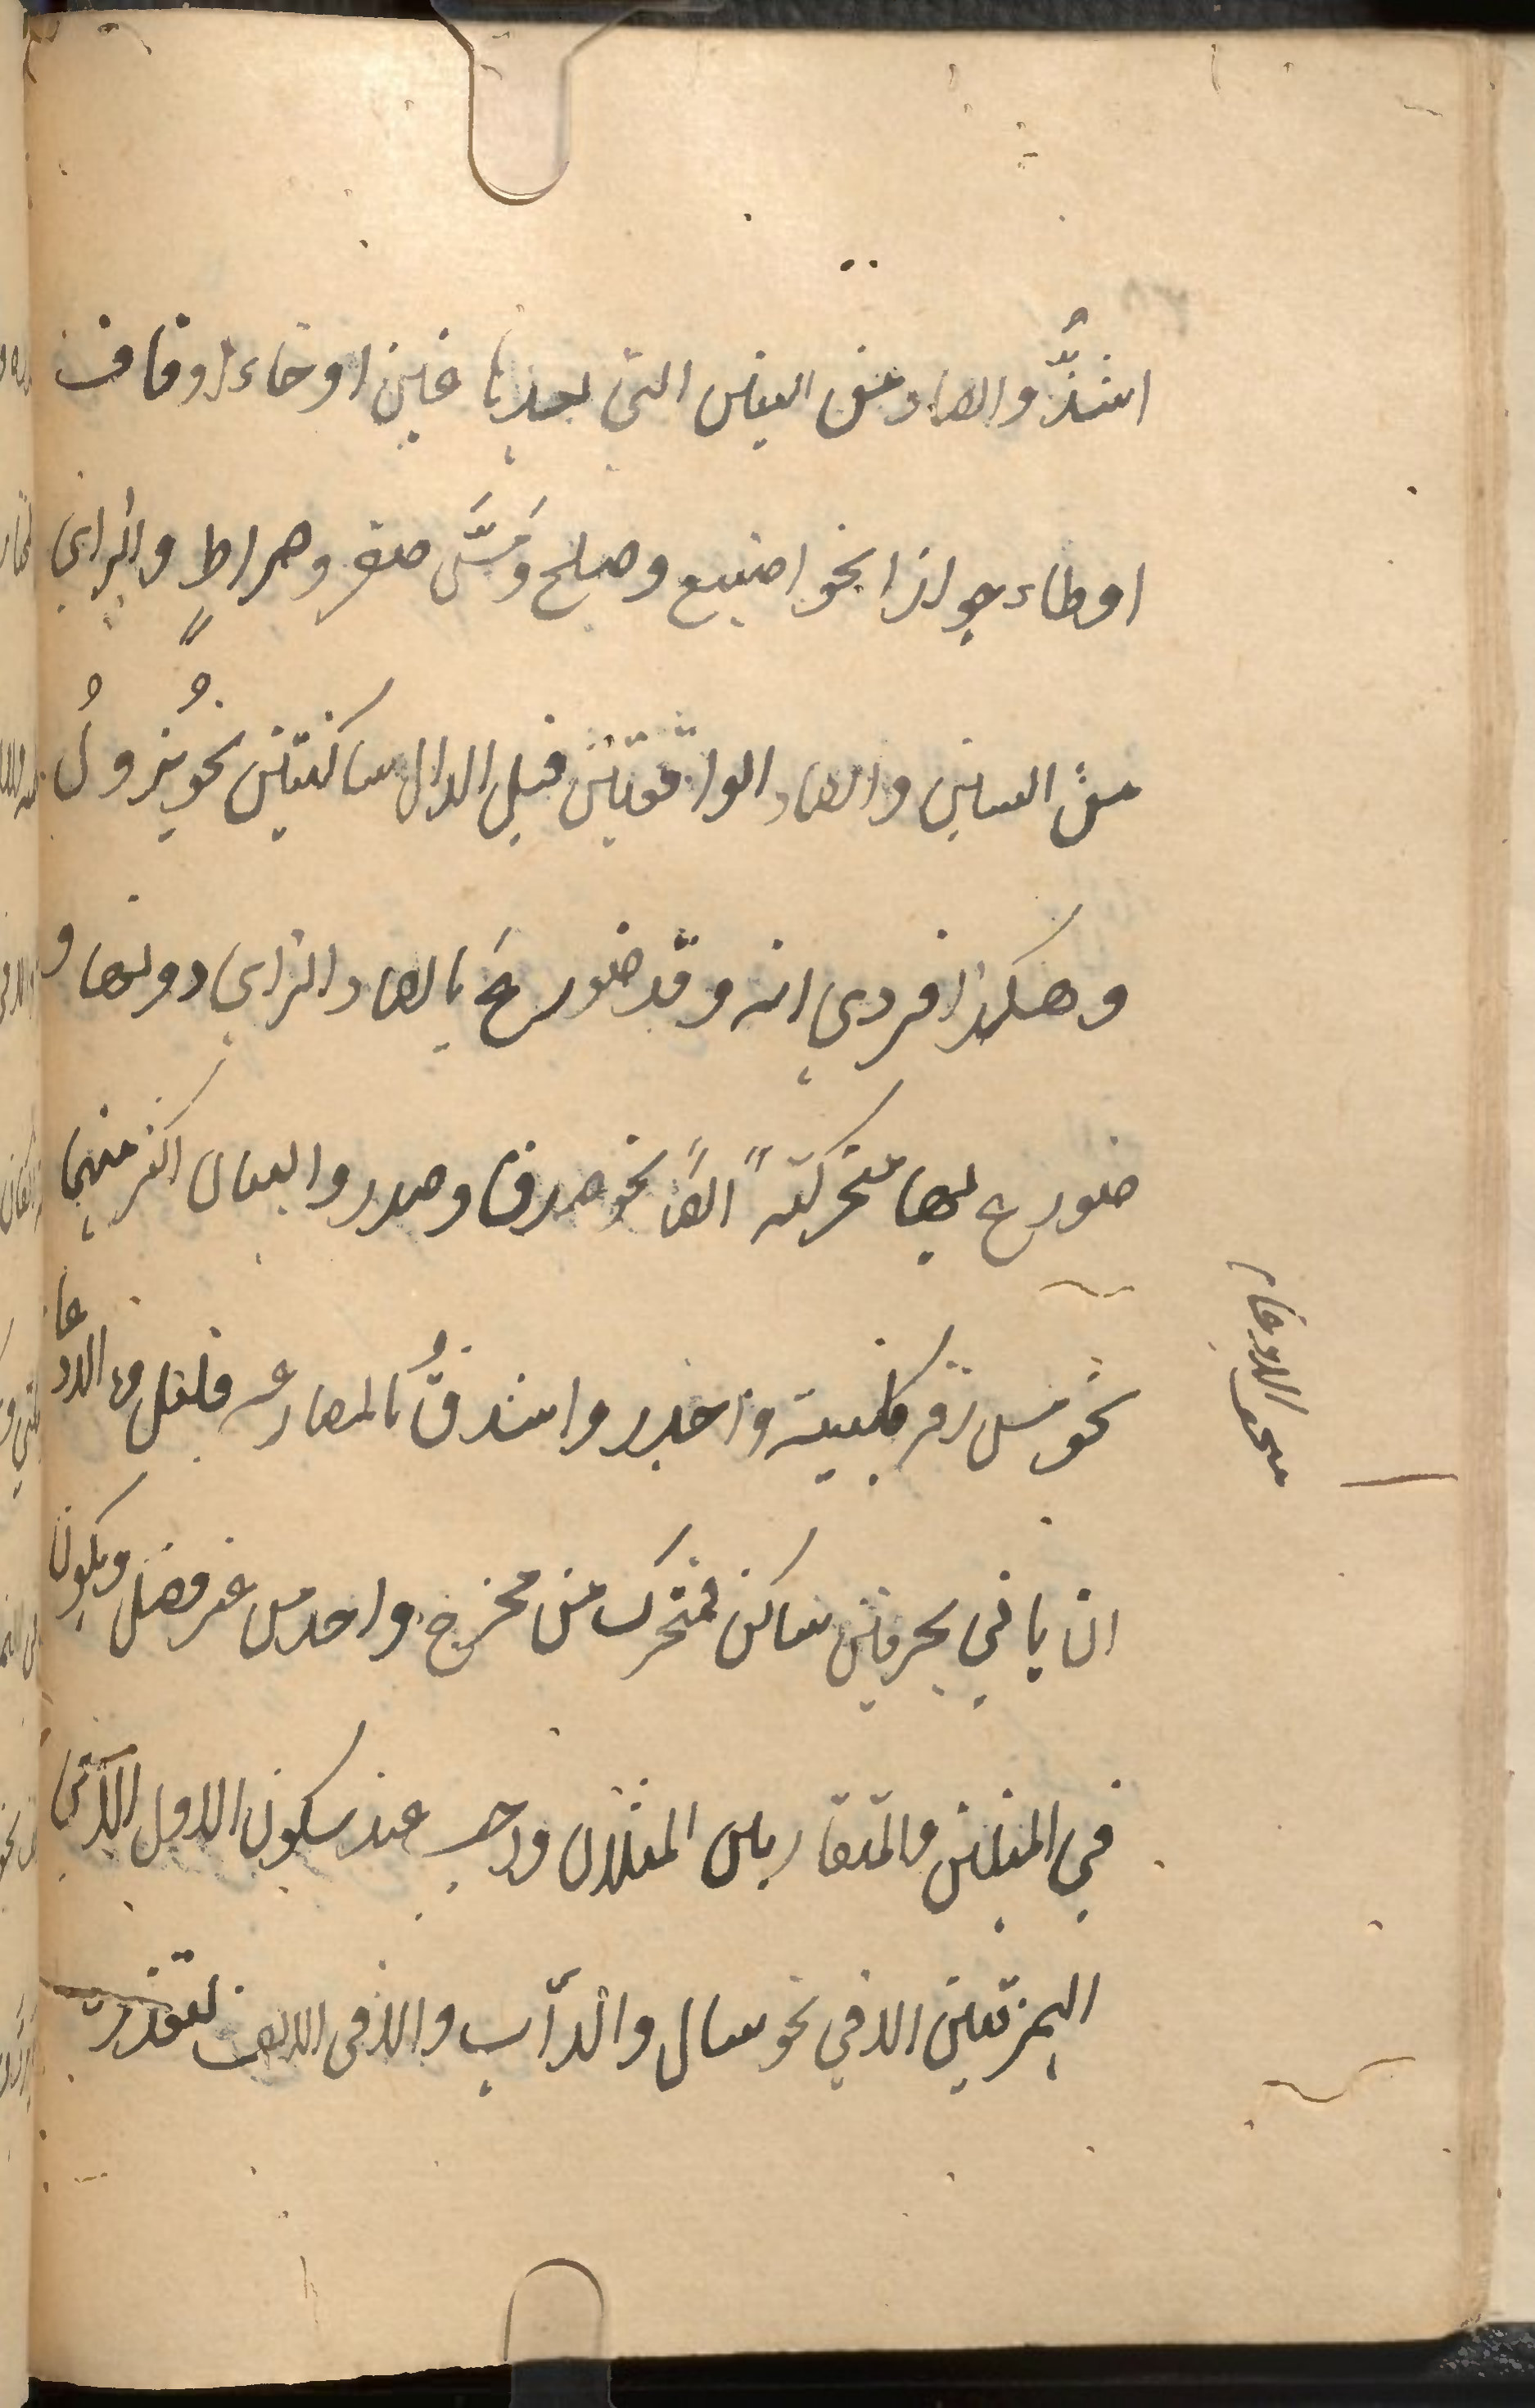 اشذُّ والصاد من السين التي بعدها غين او خاء او قاف
او طاء جوازا نحو اصبغ وصلخ ومَسَّ صقر وصراط والزاي
من السين والصاد الواقعتين قبل الدال ساكنتين نحو يُزدلُ
وهكذا فزدي انه وقد ضورع بالصاد الزاي دونها و
ضورع بها متحركة ايضًا نحو صدق وصدر والبيان اكثر منهما
نحو مس زقر كلبية واجدر واشدق بالمضارعة قليل الادغا
م ان ياتي بحرفين ساكن فمتحرك من مخرج واحد من غير فصل ويكون
في المثلين والمتقاربين المثلان واجب عند سكون الاول الا في
الهمزتين الا في نحو سال والدآب والا في الالف لتعذره
مبحث الادغام